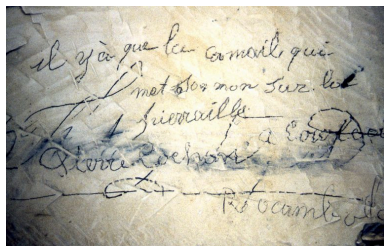 il y'à que la canaille qui
met son nom sur la
pierraille
à
Pierre Cochon
Rocambole